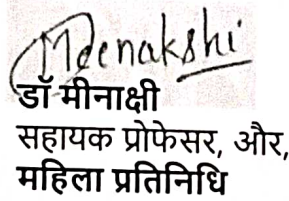 Meenakshi
डॉ मीनाक्षी
सहायक प्रोफेसर, और,
महिला प्रतिनिधि